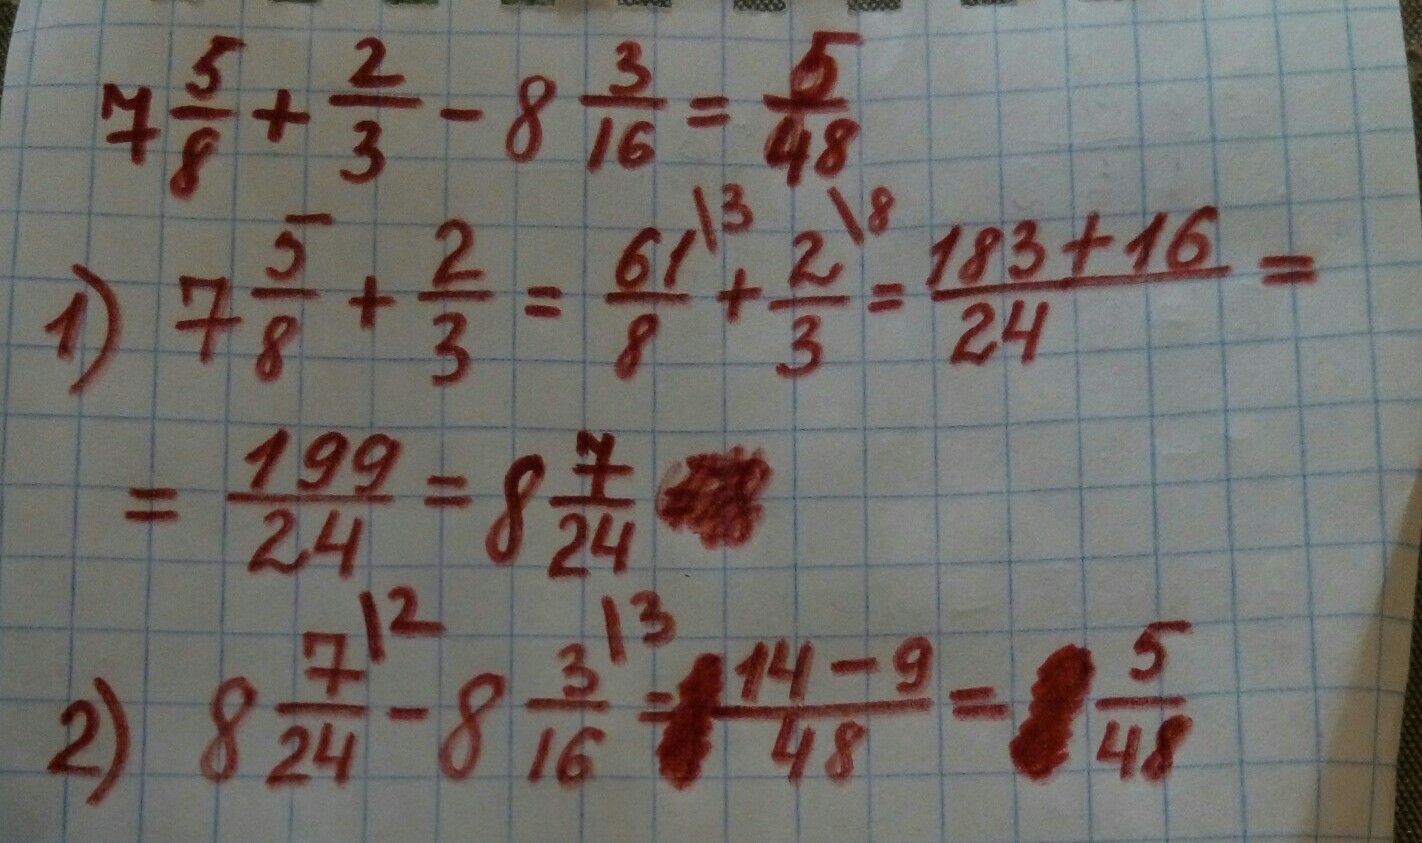 7 5/8 + 2/3 - 8 3/16 = 5/48
1) 7 5/8 + 2/3 = 61/8 \3 + 2/3 \8 = 183+16/24 =
= 199/24 = 8 7/24
2) 8 7/24 \2 - 8 3/16 \3 = 14-9/48 = 5/48